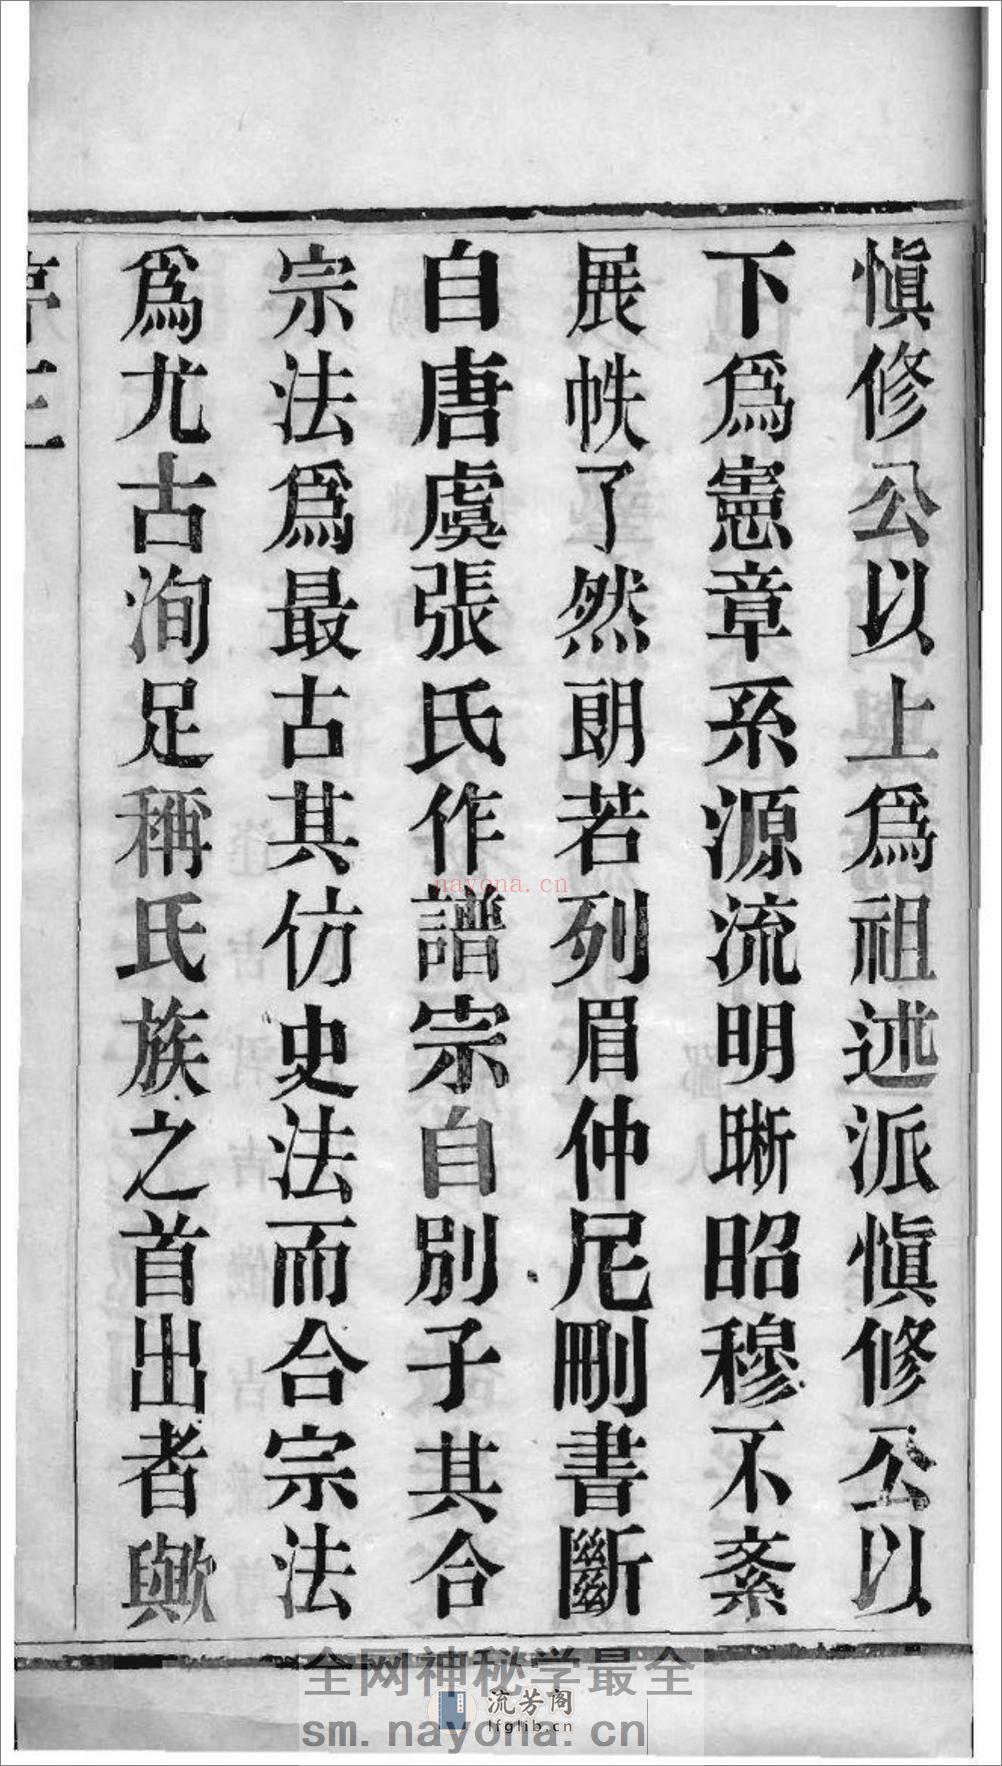 慎修公以上爲祖述派慎修公以
下爲憲章系源流明晣昭穆不紊
展帙了然朗若列眉仲尼刪書斷
自唐虞張氏作譜宗自別子其合
宗法爲最古其仿史法而合宗法
爲尤古洵足稱氏族之首出者歟
序三
nayona.cn
全网神秘学最全
流芳阁
lfglib.cn
sm.nayona.cn